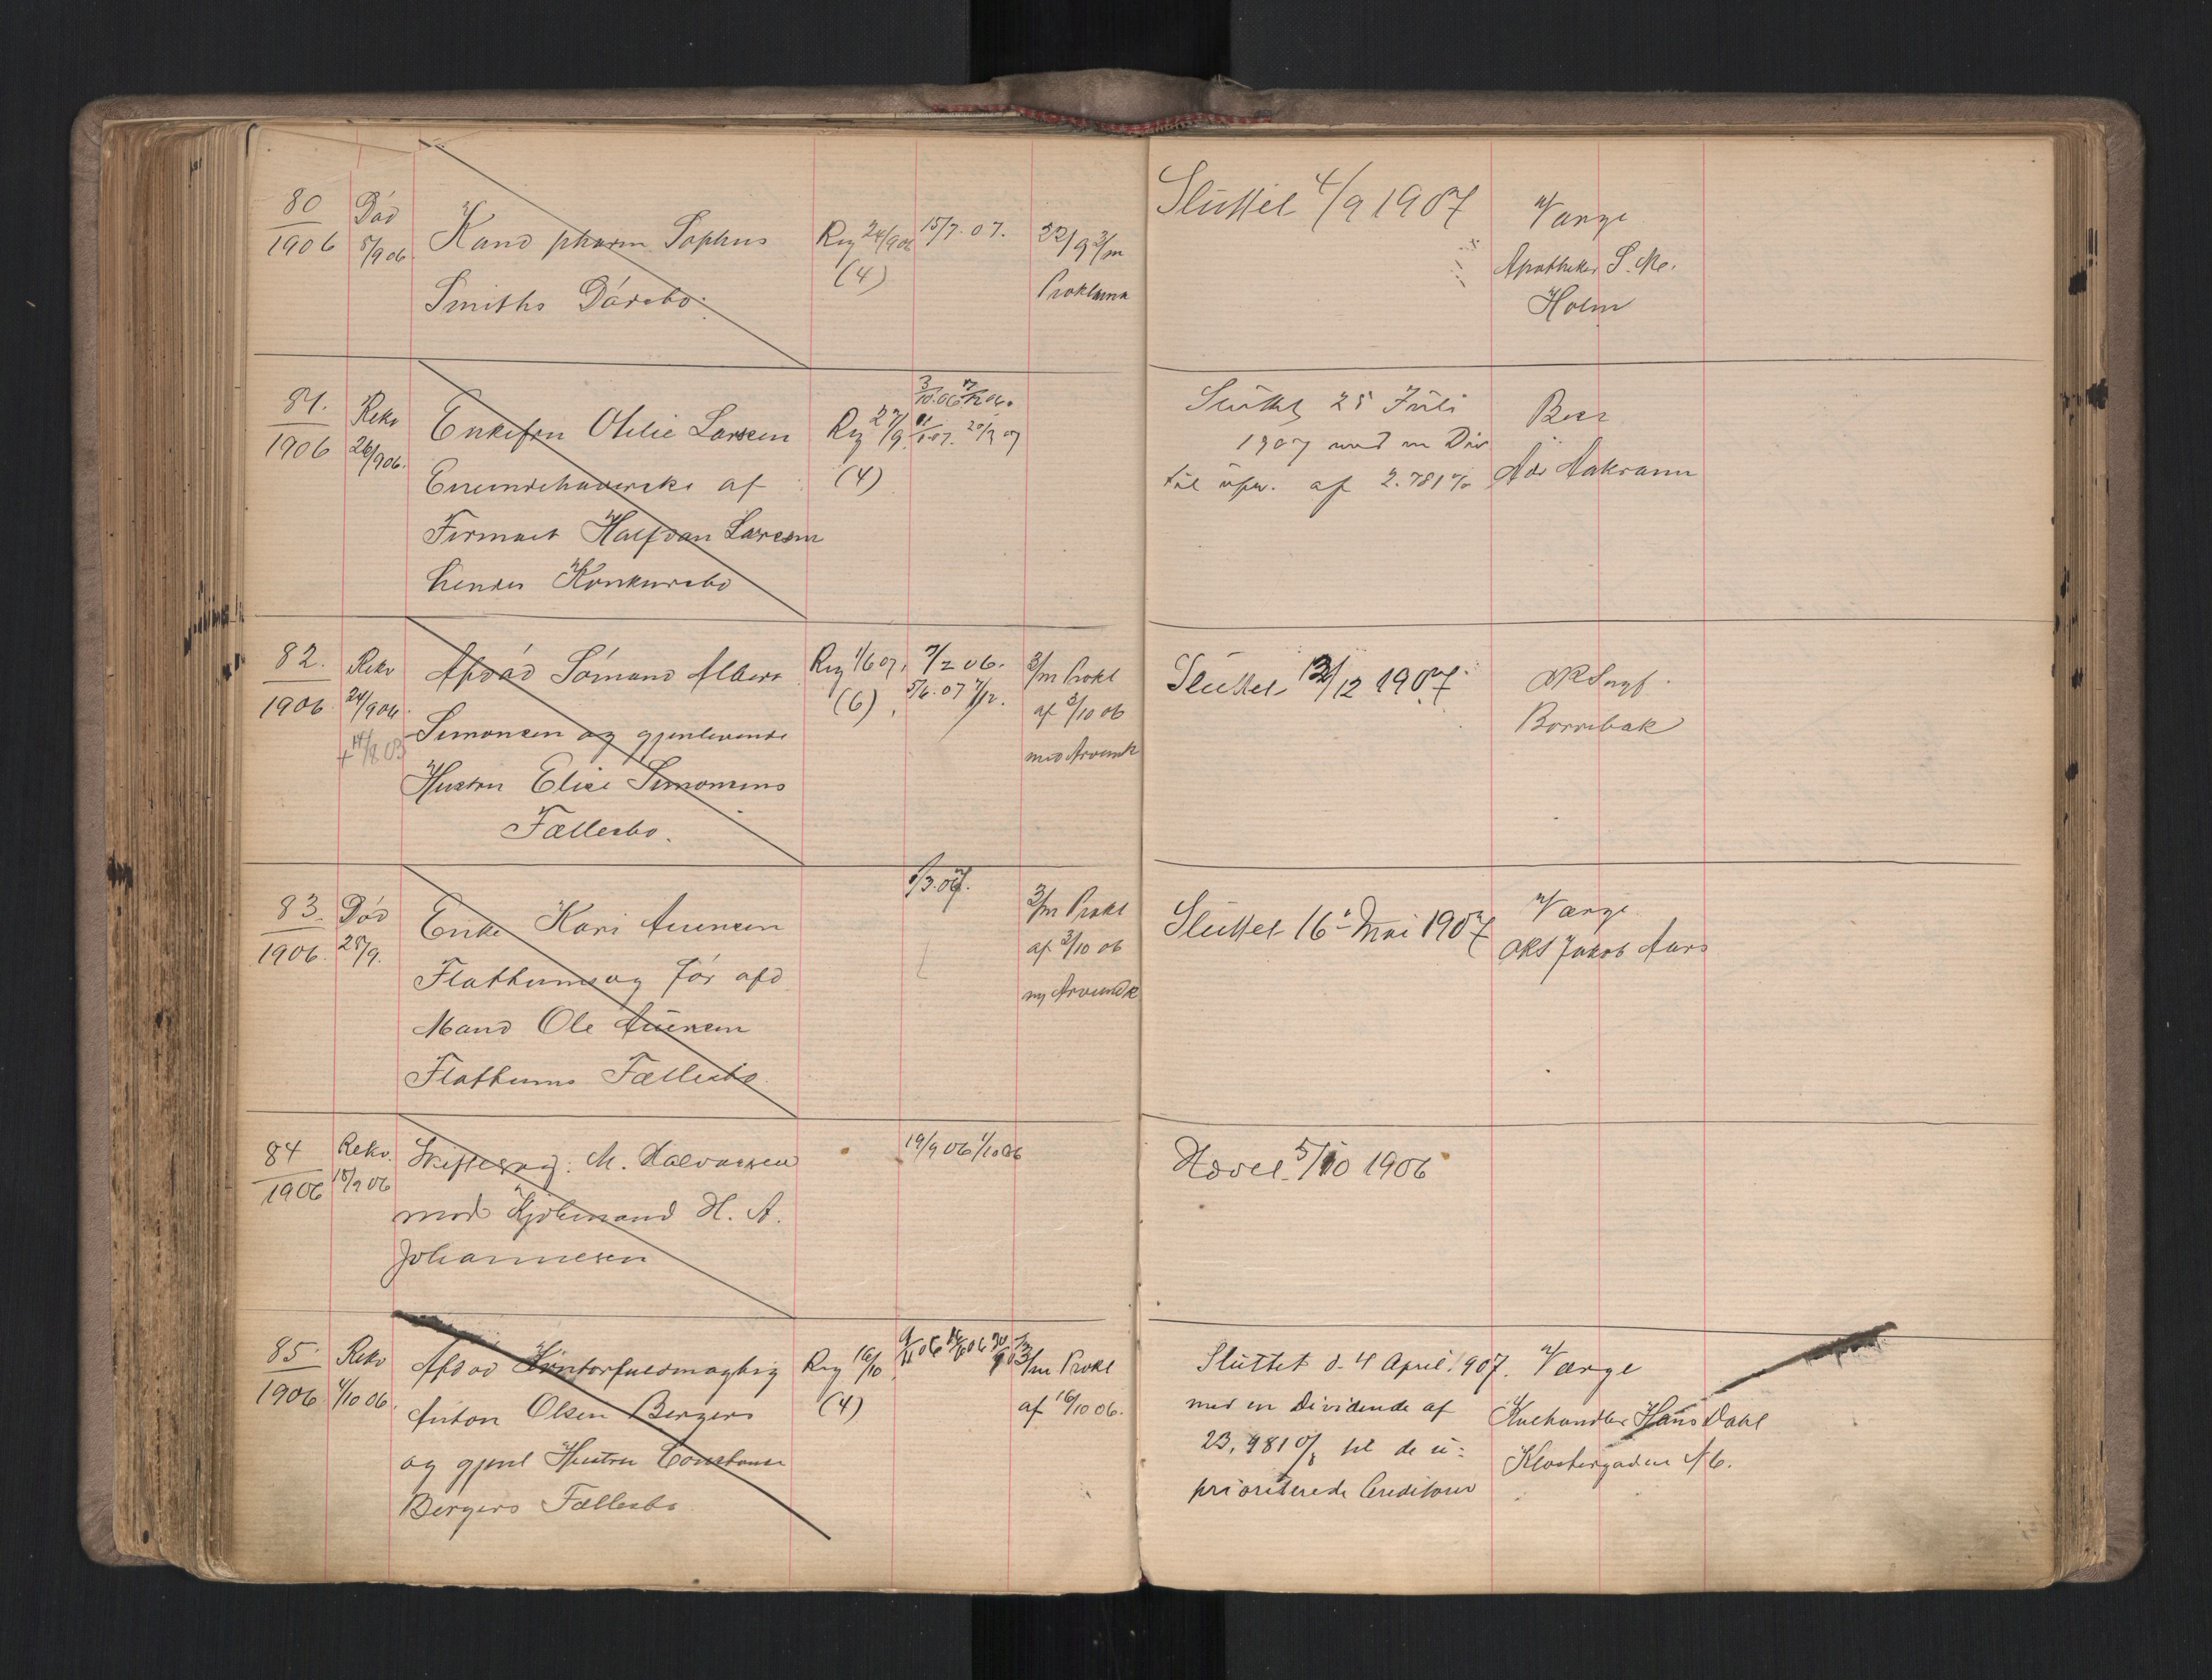 80
1906
Död
5/9 06
Kand pharm Sophus
Smiths Dödsbo.
Reg 24/9 06
(4)
15/7. 07.
22/9 3/m
Proklama
Sluttet 4/9 1907
Værge
Apotheker S. Me.
Holm
81.
1906
Rekv
26/9 06.
Enkefru Otelie Larsen
Eneindehaverske af
Firmaet Halfdan Larsen
hendes Konkursbo
Reg 27/9.
(4)
3/10.06
20/3 07
Sluttet 25 Juli
1907 med en Div
til upr. af 2.781 %
Adv Aakrann
82.
1906
Rekv
24/9 06.
Afdöd Sömand Albert
Simonsen og gjenlevende
Hustru Elise Simonsens
Fællesbo.
Reg 1/6 07.
(6)
7/2 06.
5/6. 07 7/12.
3/m Prokl
af 3/10 06
med Arveindk
Sluttet 12/12 1907.
ORSagf.
Borrebæk
83.
1906.
Död
25/9.
Enke Kari Auensen
Flathums og för afd
Mand Ole Auensen
Flathums Fællesbo
1/3. 07.
3/m Prokl
af 3/10 06
m Arveindk
Sluttet 16' Mai 1907
Værge
ORS Jakob Aars
84
1906
Rekv.
18/9 06
Skiftesag: M. Halvorsen
mod Kjöbmand H. A.
Johannesen
19/9 06 1/10 06
Hævet 5/10 1906
85.
1906.
Rekv
4/10 06.
Afdöd Kontorfuldmægtig
Anton Olsen Bergers
og gjenl Hustru Constance
Bergers Fællesbo
Reg 16/10
(4)
3/m Prokl
af 16/10 06.
Sluttet d. 4 April 1907.
med en Dividende af
23,981 % til de u-
prioriterede Creditorer
Værge
Kulhandler Hans Dahl
Klostergaden 16.